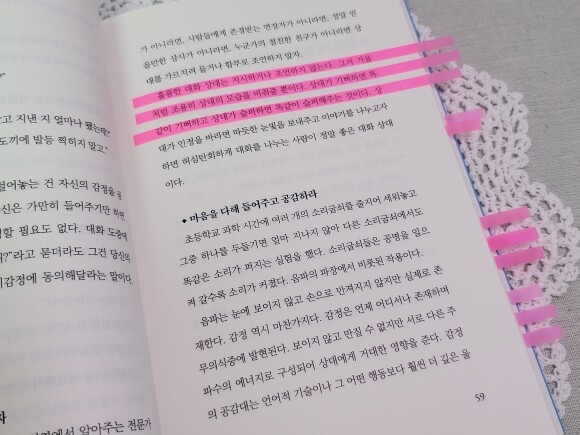 고 지낸 지 얼마나 됐는데?"
도끼에 발등 찍히지 말고."
털어놓는 건 자신의 감정을
신은 가만히 들어주기만 하면
할 필요도 없다. 대화 도중에
?"라고 묻더라도 그건 당신의
감정에 동의해달라는 말이다.
에서 알아주는 전문가
가 아니라면, 사람들에게 존경받는 연장자가 아니라면, 정말 믿
을만한 상사가 아니라면, 누군가의 절친한 친구가 아니라면 상
대를 가르치려 들거나 함부로 조언하지 말자.
훌륭한 대화 상대는 지시하거나 조언하지 않는다. 그저 거울
처럼 조용히 상대의 모습을 비춰줄 뿐이다. 상대가 기뻐하면 똑
같이 기뻐하고 상대가 슬퍼하면 똑같이 슬퍼해주는 것이다. 상
대가 인정을 바라면 따뜻한 눈빛을 보내주고 이야기를 나누고자
하면 허심탄회하게 대화를 나누는 사람이 정말 좋은 대화 상대
이다.
◆ 마음을 다해 들어주고 공감하라
초등학교 과학 시간에 여러 개의 소리굽쇠를 줄지어 세워놓고
그중 하나를 두드리면 얼마 지나지 않아 다른 소리굽쇠에서도
똑같은 소리가 퍼지는 실험을 했다. 소리굽쇠들은 공명을 일으
켜 갈수록 소리가 커졌다. 음파의 파장에서 비롯된 작용이다.
음파는 눈에 보이지 않고 손으로 만져지지 않지만 실제로 존
재한다. 감정 역시 마찬가지다. 감정은 언제 어디서나 존재하며
무의식중에 발현된다. 보이지 않고 만질 수 없지만 서로 다른 주
파수의 에너지로 구성되어 상대에게 거대한 영향을 준다. 감정
의 공감대는 언어적 기술이나 그 어떤 행동보다 훨씬 더 깊은 울
59